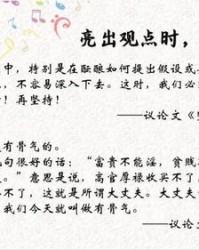 亮出观点时，
中，特别是在酝酿如何提出假设或
，不容易深入下去。这时，我们必
！再坚持！
——议论文《
有骨气的。
句很好的话：“富贵不能淫，贫贱
”意思是说，高官厚禄收买不了，
不了，这就是所谓大丈夫。大丈夫
我们今天就叫做有骨气。
——议论